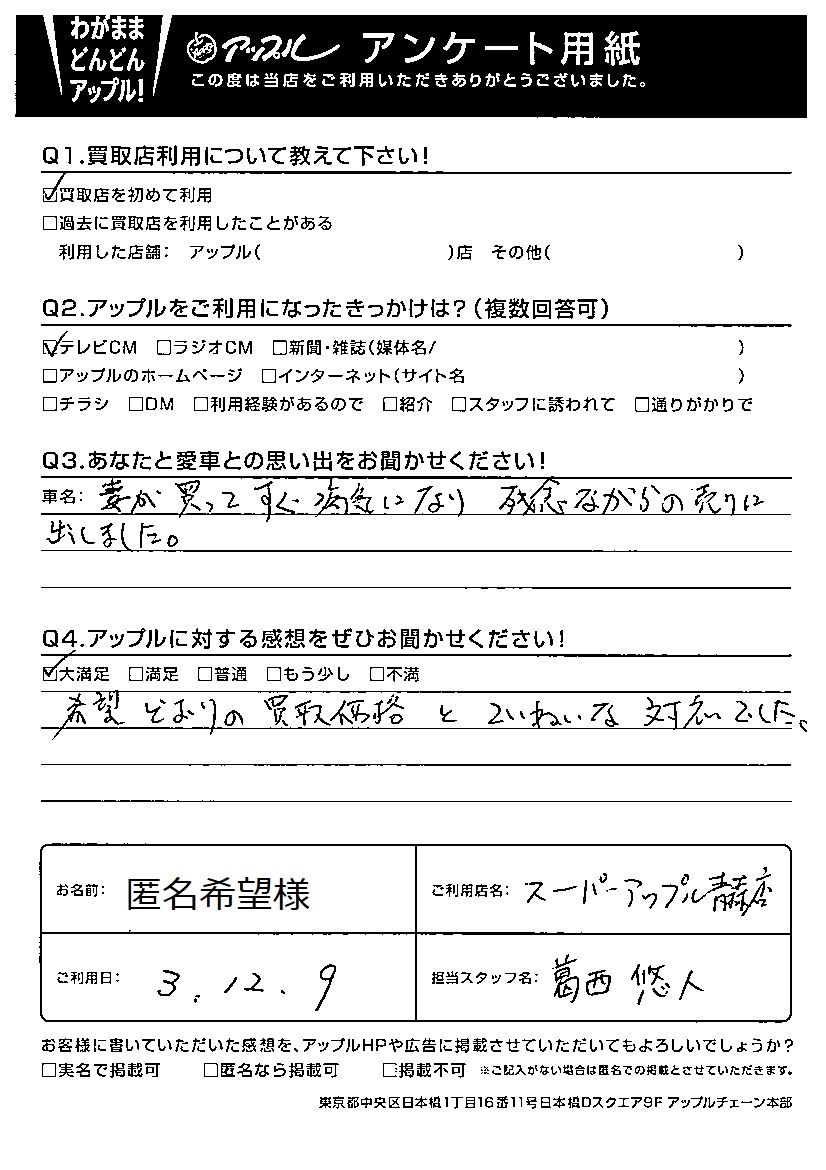 わがまま
どんどん
アップル!
アップル アンケート用紙
この度は当店をご利用いただきありがとうございました。
Q1.買取店利用について教えて下さい!
☑買取店を初めて利用
□過去に買取店を利用したことがある
利用した店舗: アップル( )店 その他( )
Q2.アップルをご利用になったきっかけは?(複数回答可)
☑テレビCM □ラジオCM □新聞・雑誌(媒体名/ )
□アップルのホームページ □インターネット(サイト名 )
□チラシ □DM □利用経験があるので □紹介 □スタッフに誘われて □通りがかりで
Q3.あなたと愛車との思い出をお聞かせください!
車名: 妻が買ってすぐ病気になり 残念ながらの売りに
出しました。
Q4.アップルに対する感想をぜひお聞かせください!
☑大満足 □満足 □普通 □もう少し □不満
希望どおりの買取価格とていねいな対応でした。
お名前: 匿名希望様
ご利用店名: スーパーアップル青森店
ご利用日: 3.12.9
担当スタッフ名: 葛西 悠人
お客様に書いていただいた感想を、アップルHPや広告に掲載させていただいてもよろしいでしょうか?
□実名で掲載可 □匿名なら掲載可 □掲載不可 ※ご記入がない場合は匿名での掲載とさせていただきます。
東京都中央区日本橋1丁目16番11号日本橋Dスクエア9F アップルチェーン本部